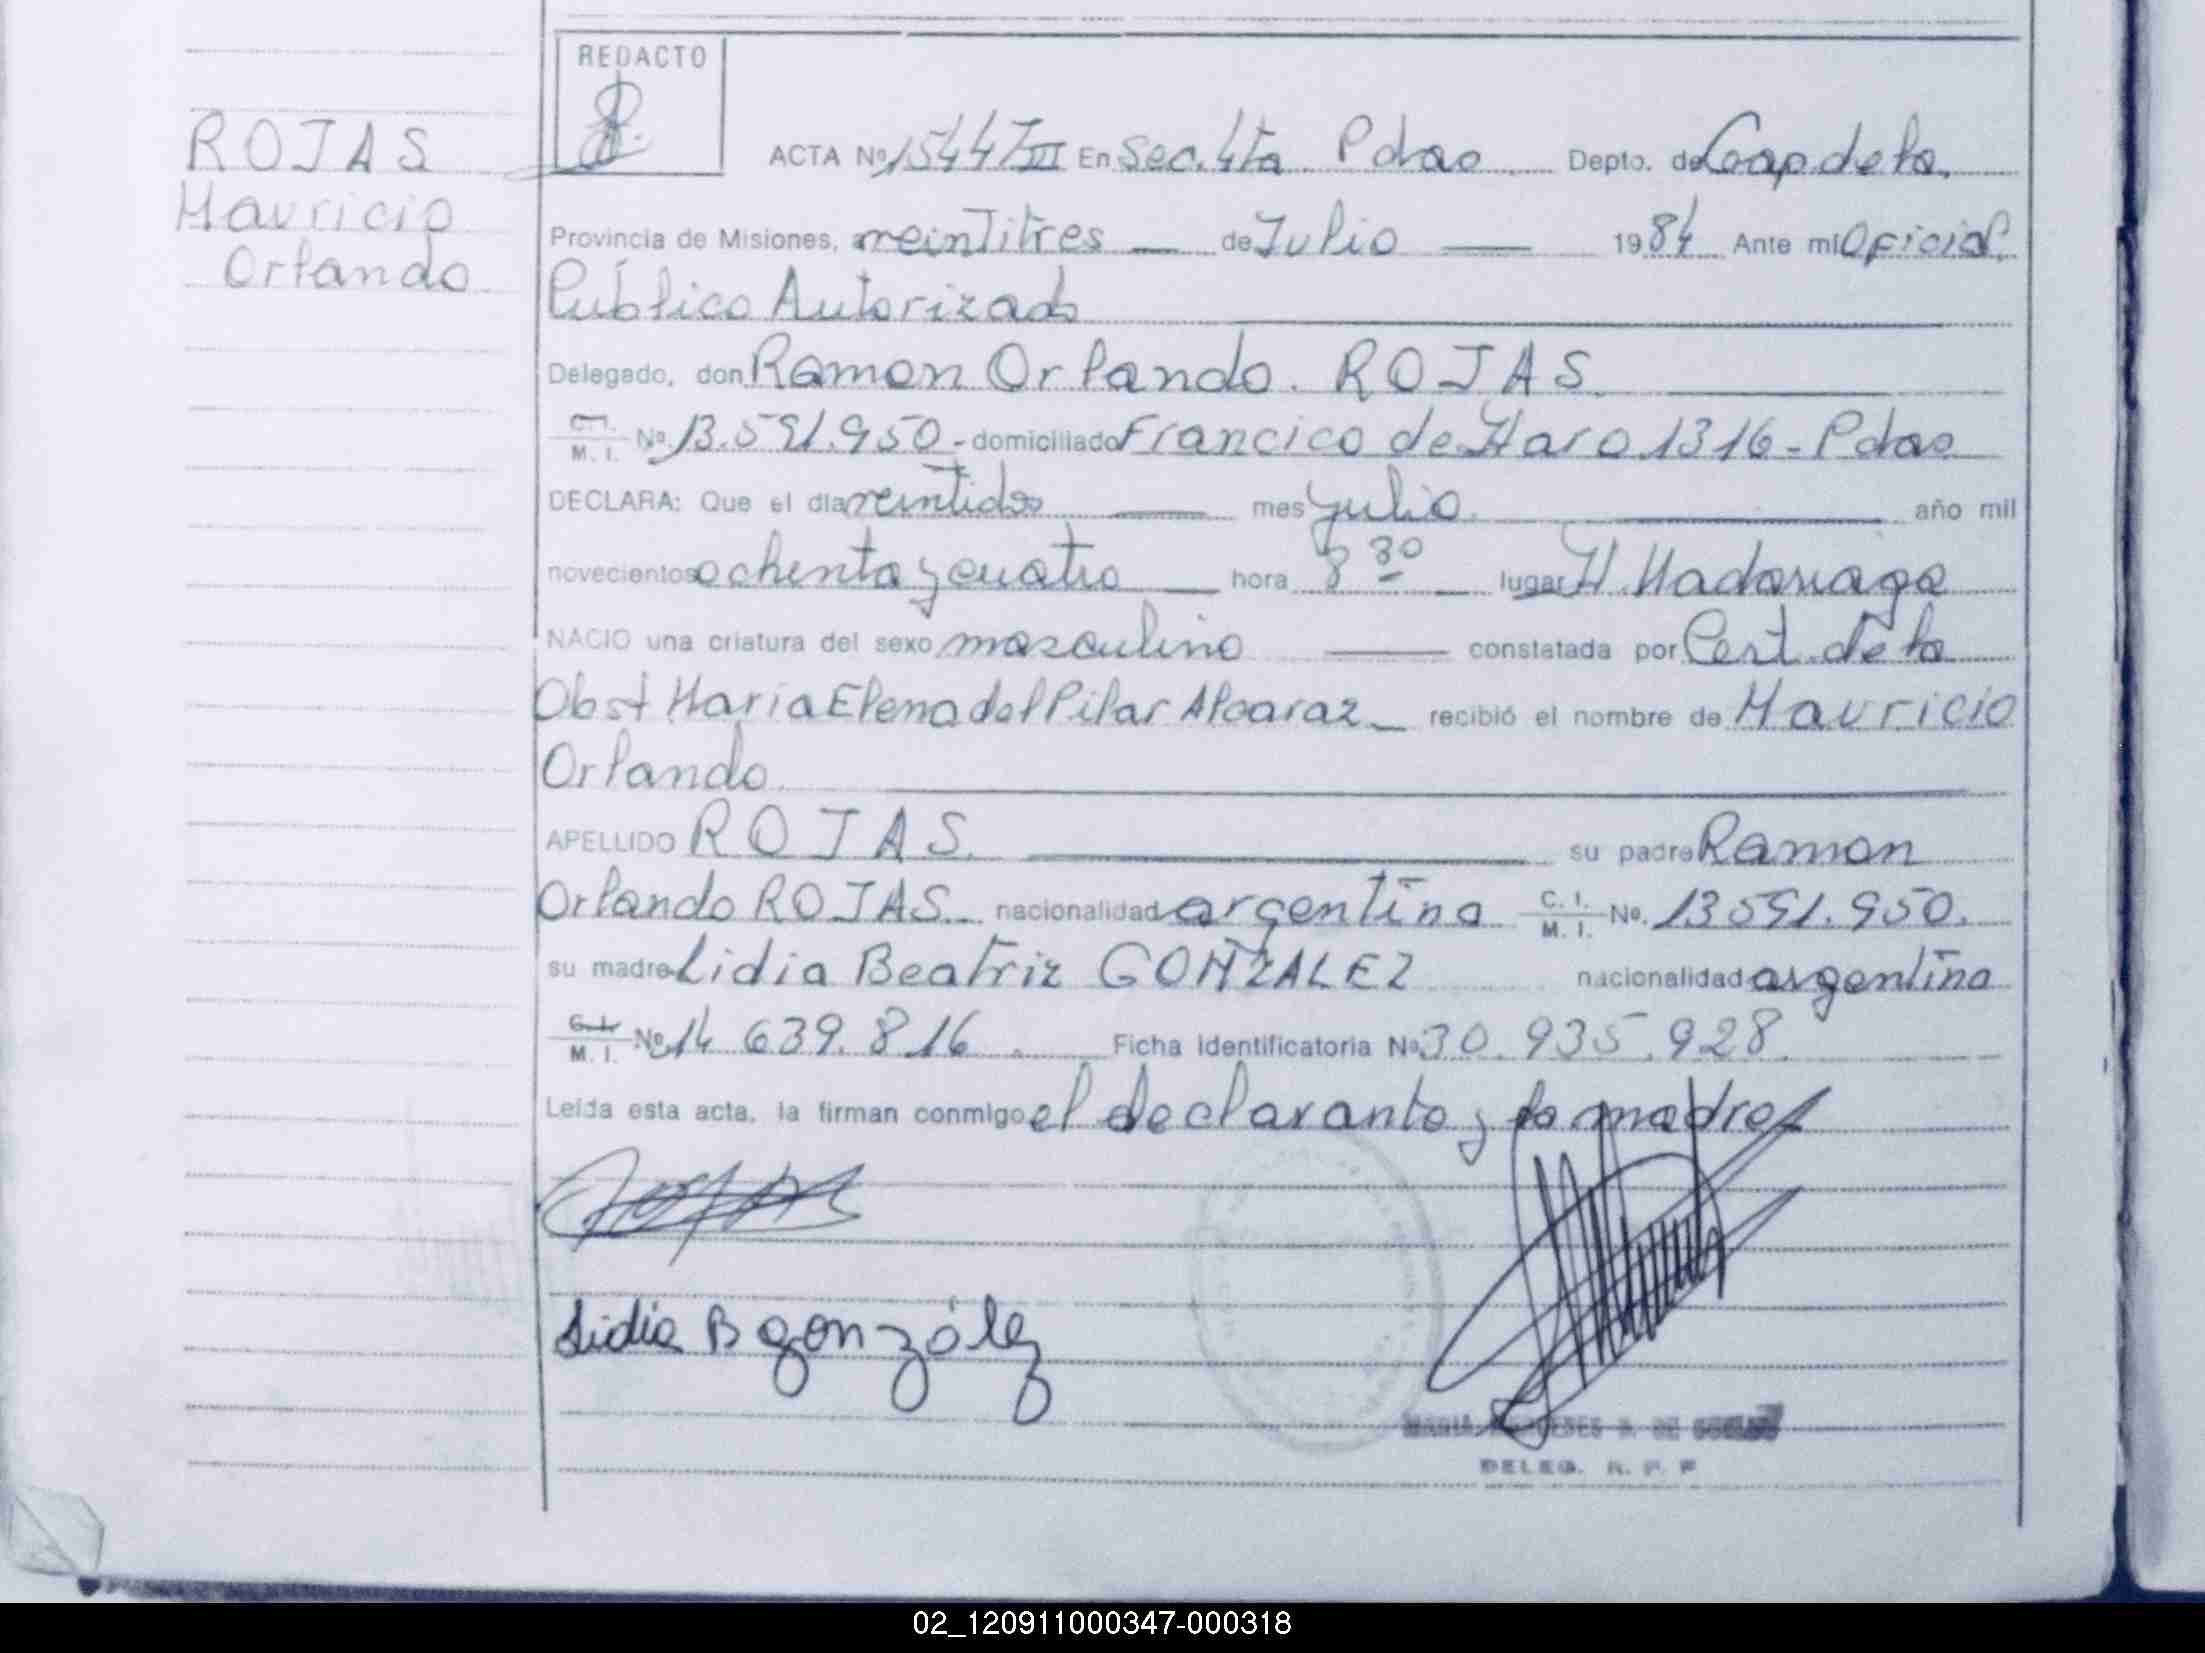 REDACTO
ROJAS
Mauricio
Orlando
ACTA Nº 1544 T III En Sec. 4ta Pdas Depto. de Capdeta.
Provincia de Misiones, a veintitres — de Julio — 1984 Ante mi Oficial
Público Autorizado
Delegado, don Ramon Orlando. ROJAS
C. I. M. I. Nº 13.591.950 - domiciliado Francico de Haro 1316 - Pdas
DECLARA: Que el día veintidos — mes julio — año mil
novecientos ochenta y cuatro — hora 8 30 — lugar H. Madariaga
NACIO una criatura del sexo masculino — constatada por Cert. de la
Obst Maria Elena del Pilar Alcaraz — recibió el nombre de Mauricio
Orlando
APELLIDO ROJAS. — su padre Ramon
Orlando ROJAS nacionalidad argentina C. I. M. I. Nº. 13591.950.
su madre Lidia Beatriz GONZALEZ nacionalidad argentina
C. I. M. I. Nº 14 639.816. Ficha Identificatoria Nº 30.935.928.
Leída esta acta, la firman conmigo el declarante y la madre
Lidia B González
DELEG. R. P. P
02_120911000347-000318